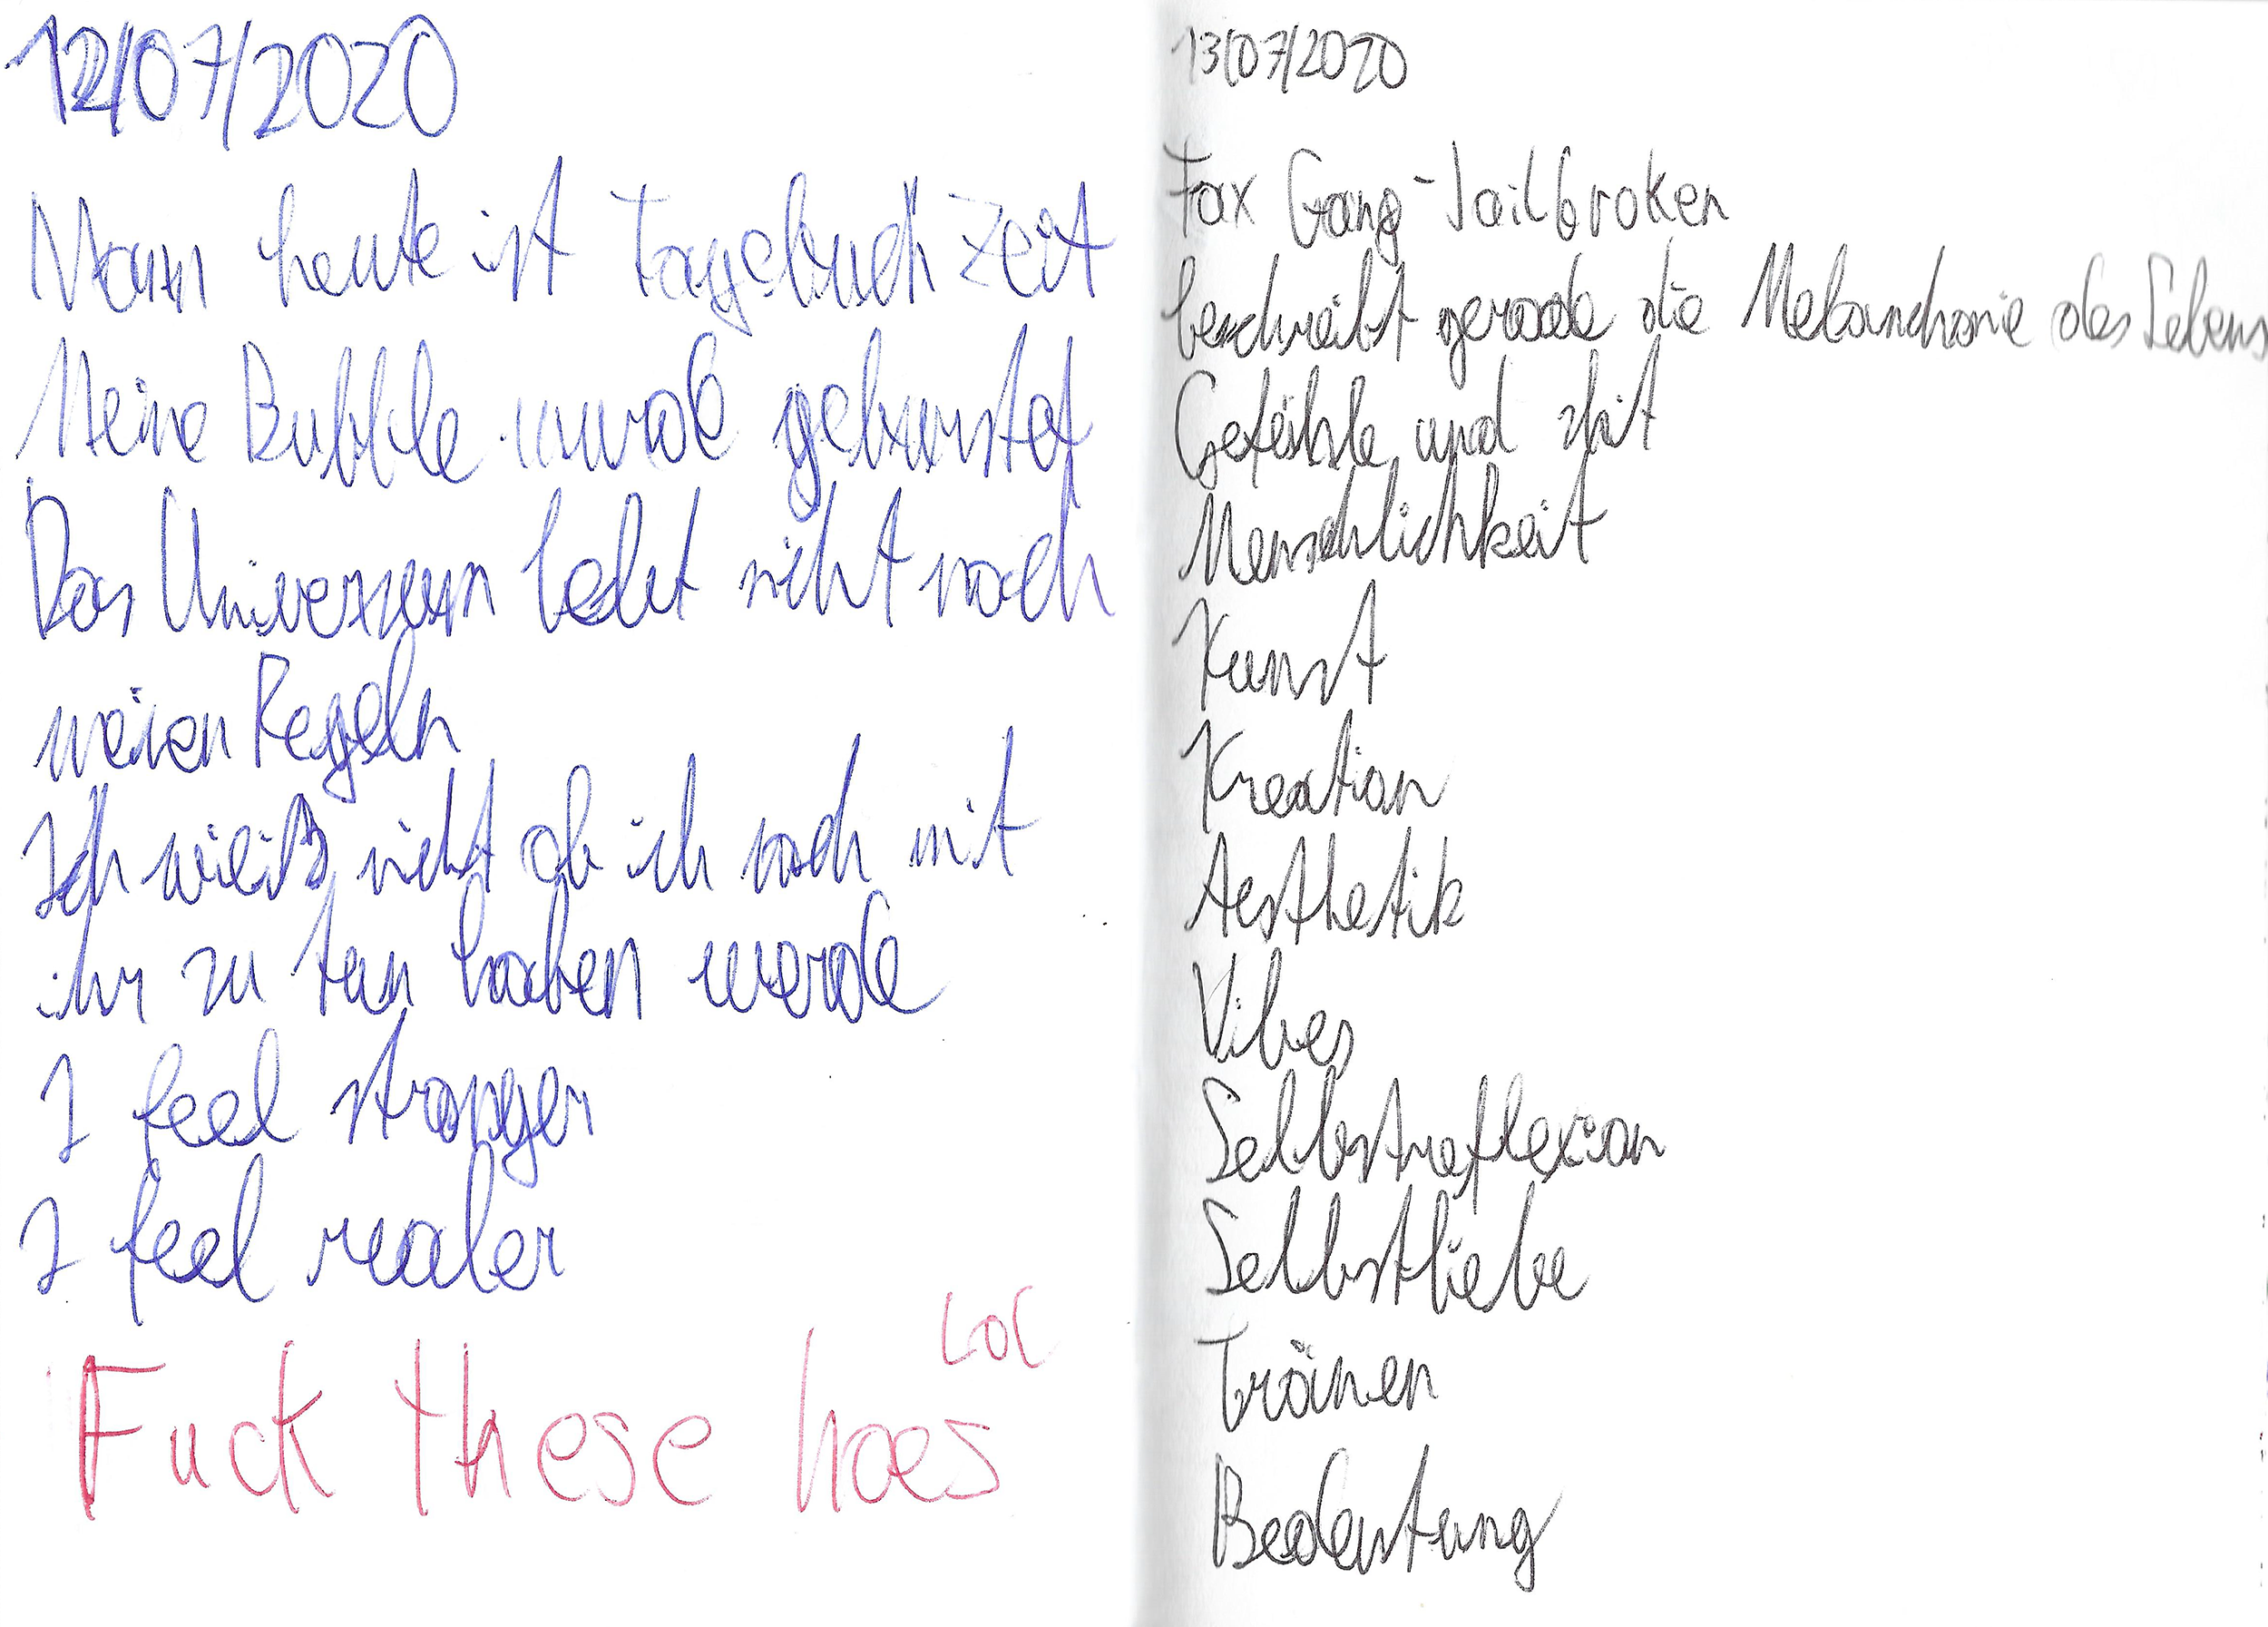 12/07/2020
Mann heute ist Tagebuch Zeit
Meine Bubble wurde geburstet
Das Universum lebt nicht nach
meinen Regeln
Ich weiß nicht ob ich noch mit
ihr zu tun haben werde
I feel stronger
I feel realer
Lol
Fuck these hoes
13/07/2020
Fax Gang - Jailbroken
beschreibt gerade die Melancholie des Lebens
Gefühle und shit
Menschlichkeit
Kunst
Kreation
Aesthetik
Vibes
Selbstreflexion
Selbstliebe
Tränen
Bedeutung